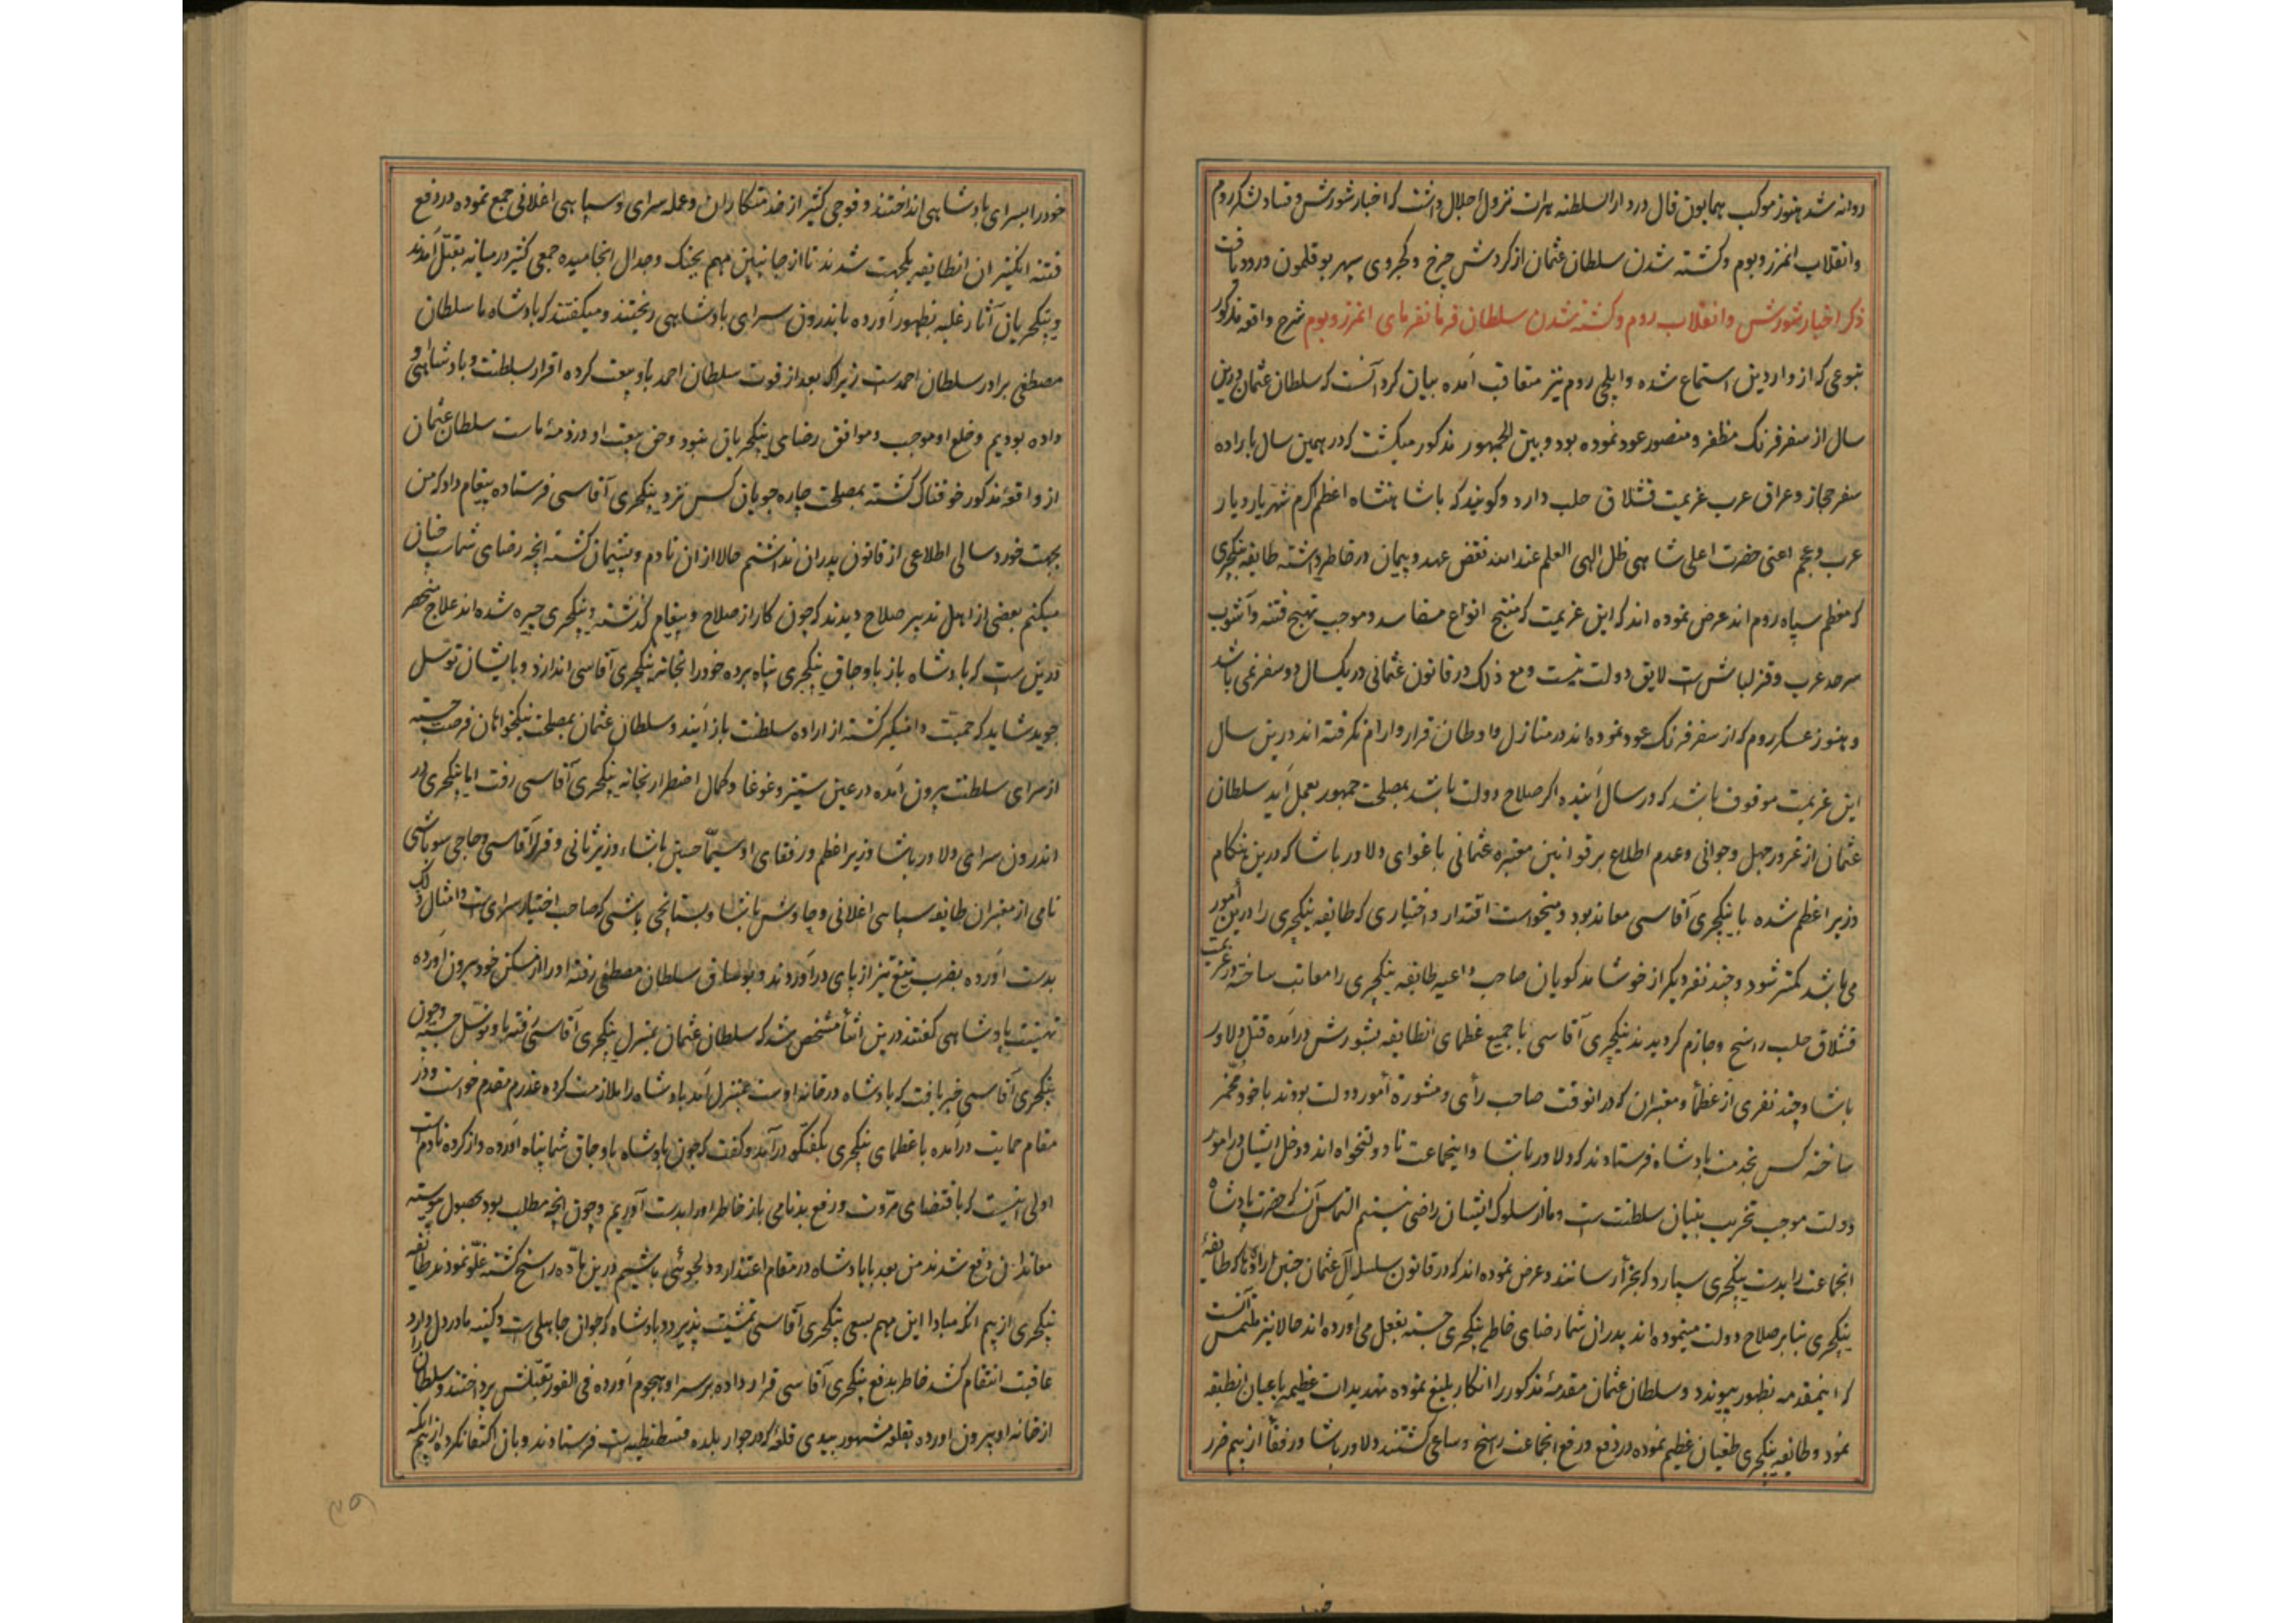 روانه شد هنوز موکب همایون فال در دار السلطنه هرات نزول اجلال داشت که اخبار شورش و فساد لشکر روم
و انقلاب انمرز و بوم و کشته شدن سلطان عثمان از کردش چرخ و کجروی سپهر بوقلمون ورود یافت
ذکر اخبار شورش و انقلاب روم و کشته شدن سلطان فرمانفرمای انمرز و بوم شرح واقعه مذکور
بنوعی که از واردین استماع شده و ایلچی روم نیز متعاقب آمده بیان کرد آنست که سلطان عثمان درین
سال از سفر فرنک مظفر و منصور عود نموده بود و بین الجمهور مذکور میکشت که در همین سال باراده
سفر حجاز و عراق عرب عزیمت قشلاق حلب دارد و کویند که با شاهنشاه اعظم اکرم شهریار دیار
عرب و عجم اعنی حضرت اعلی شاهی ظل الهی العلم عند الله نقض عهد و پیمان در خاطر داشته طایفه ینکچری
که معظم سپاه روم اند عرض نموده اند که این عزیمت که منتج انواع مفاسد و موجب تهیج فتنه و آشوب
سرحد عرب و قزلباش است لایق دولت نیست و مع ذلک در قانون عثمانی در یکسال دو سفر نمی باشد
و هنوز عسکر روم که از سفر فرنک عود نموده اند در منازل و اوطان قرار و ارام نکرفته اند درین سال
این عزیمت موقوف باشد که در سال آینده اکر صلاح دولت باشد بمصلحت جمهور بعمل آید سلطان
عثمان از غرور جهل و جوانی و عدم اطلاع بر قوانین معتبره عثمانی باغوای دلاور پاشا که درین هنکام
وزیر اعظم شده با ینکچری آقاسی معاند بود و میخواست اقتدار و اختیاری که طایفه ینکچری را درین امور
می باشد کمتر شود و چند نفر دیکر از خوشامد کویان صاحب داعیه طایفه ینکچری را معاتب ساخته در عزیمت
قشلاق حلب راسخ و جازم کردیدند ینکچری آقاسی با جمیع عظمای انطایفه بشورش درآمده قتل دلاور
پاشا و چند نفری از عظما و معتبران که در انوقت صاحب رأی و مشورة امور دولت بودند با خود مخمر
ساخته کس بخدمت پادشاه فرستادند که دلاور پاشا و اینجماعت نادولتخواه اند و دخل ایشان در امور
دولت موجب تخریب بنیان سلطنت است و ما از سلوک ایشان راضی نیستیم التماس آنکه حضرت پادشاه
انجماعت را بدست ینکچری سپارد که بجزا رسانند و عرض نموده اند که در قانون سلسله آل عثمان چنین اراده ها که طایفهٔ
ینکچری بنا بر صلاح دولت مینموده اند پدران شما رضای خاطر ینکچری جسته بفعل می اورده اند حالا نیز ملتمس آنست
که اینمقدمه بظهور پیوندد و سلطان عثمان مقدمهٔ مذکور را انکار بلیغ نموده تهدیدات عظیمه باعیان انطبقه
نمود و طایفه ینکچری طغیان عظیم نموده در دفع و رفع انجماعت راسخ و ساعی کشتند دلاور پاشا و رفقا از بیم ضرر
خود را بسرای پادشاهی انداختند و فوجی کثیر از خدمتکاران و عمله سرای و سپاهی اغلانی جمع نموده در دفع
فتنه انکیزان انطایفه یکجهت شدند تا از جانبین مهم بجنک و جدال انجامیده جمعی کثیر در میانه بقتل آمدند
و ینکچریان آثار غلبه بظهور آورده باندرون سرای پادشاهی ریختند و میکفتند که پادشاه ما سلطان
مصطفی برادر سلطان احمدست زیرا که بعد از فوت سلطان احمد باو بیعت کرده اقرار بسلطنت و پادشاهی او
داده بودیم و خلع او موجب و موافق رضای ینکچریان نبود و حق بیعت او در ذمهٔ ماست سلطان عثمان
از واقعهٔ مذکور خوفناک کشته بمصلحت چاره جویان کس نزد ینکچری آقاسی فرستاده پیغام داد که من
بجهت خوردسالی اطلاعی از قانون پدران نداشتم حالا از ان نادم و پشیمان کشته انچه رضای شماست چنان
میکنم بعضی از اهل تدبیر صلاح دیدند که چون کار از صلاح و پیغام کذشته و ینکچری چیره شده اند علاج منحصر
درین ست که پادشاه باز باوجاق ینکچری پناه برده خود را بخانه ینکچری آقاسی اندازد و بایشان توسل
جوید شاید که حمیت دامنکیر کشته از اراده سلطنت باز آیند و سلطان عثمان بمصلحت نیکخواهان فرصت جسته
از سرای سلطنت بیرون آمده در عین ستیز و غوغا و کمال اضطرار بخانه ینکچری آقاسی رفت اما ینکچری در
اندرون سرای دلاور پاشا وزیر اعظم و رفقای او سیما حسین پاشاء وزیر ثانی و قزلر آقاسی و حاجی سوباشی
نامی از معتبران طایفه سپاهی اغلانی و چاوش پاشا و بستانچی باشی که صاحب اختیار سرای ست و امثال ذلک
بدست آورده بضرب تیغ تیز از پای درآوردند و بوساق سلطان مصطفی رفته او را از مسکن خود بیرون آورده
تهنیت پادشاهی کفتند درین اثنا مشخص شد که سلطان عثمان بمنزل ینکچری آقاسی رفته باو توسل جسته و چون
ینکچری آقاسی خبر یافت که پادشاه در خانه اوست بمنزل آمد پادشاه را ملازمت کرده عذر مقدم خواست و در
مقام حمایت درآمده با عظمای ینکچری بکفتکو درآمد و کفت که چون پادشاه باوجاق شما پناه آورده و از کرده نادم است
اولی انیست که باقتضای مروت و رفع بدنامی باز خاطر او را بدست آوریم و چون انچه مطلب بود بحصول پیوسته
معاندان دفع شدند من بعد با پادشاه در مقام اعتذار و دلجوئی باشیم درین ماده راسخ کشته غلو نمودند طایفه
ینکچری از بیم انکه مبادا این مهم بسعی ینکچری آقاسی تمشیت پذیرد و پادشاه که جوان جاهلی ست و کینه ما در دل دارد
عاقبت انتقام کشد خاطر بدفع ینکچری آقاسی قرار داده بر سر او هجوم آورده فی الفور بقتلش پرداختند و سلطان را
از خانه او بیرون اورده بقلعه مشهور بیدی قله که در جوار بلده قسطنطنیه است فرستادند و بان اکتفا نکرده از بیم انکه